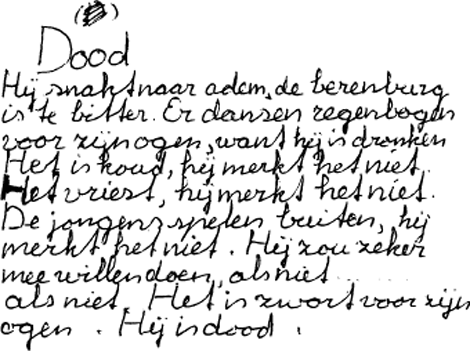 Dood
Hij snakt naar adem, de berenburg
is te bitter. Er dansen regenbogen
voor zijn ogen, want hij is dronken
Het is koud, hij merkt het niet.
Het vriest, hij merkt het niet.
De jongens spelen buiten, hij
merkt het niet. Hij zou zeker
mee willen doen, als niet........
als niet. Het is zwart voor zijn
ogen. Hij is dood.